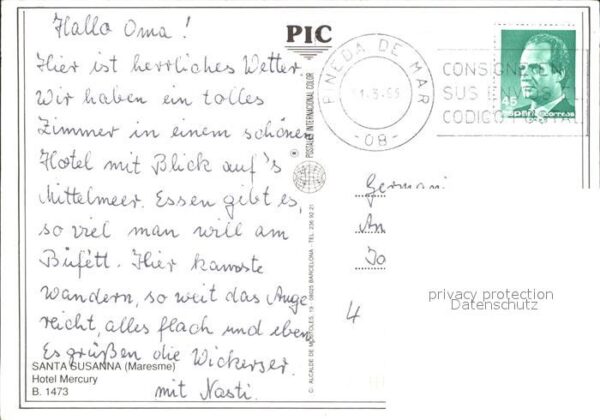 Hallo Oma!
Hier ist herrliches Wetter
Wir haben ein tolles
Zimmer in einem schönen
Hotel mit Blick auf's
Mittelmeer. Essen gibt es,
so viel man will am
Büfétt. Hier kannste
wandern, so weit das Auge
reicht, alles flach und eben
Es grüßen die
mit Nasti.
SANTA SUSANNA (Maresme)
Hotel Mercury
B. 1473
PIC
POSTALES INTERNACIONAL COLOR
C/. ALCALDE DE MOSTOLES, 19 - 08025 BARCELONA - TEL. 236 92 21
PINEDA DE MAR
-08-
CONSIGNE EN
SUS ENVIOS
CODIGO POSTAL
45
correos
Germani
An
4
privacy protection
Datenschutz